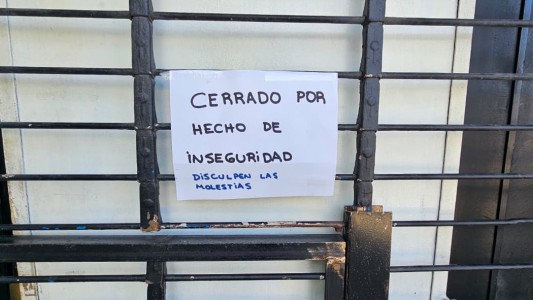 CERRADO POR
HECHO DE
INSEGURIDAD
DISCULPEN LAS
MOLESTIAS